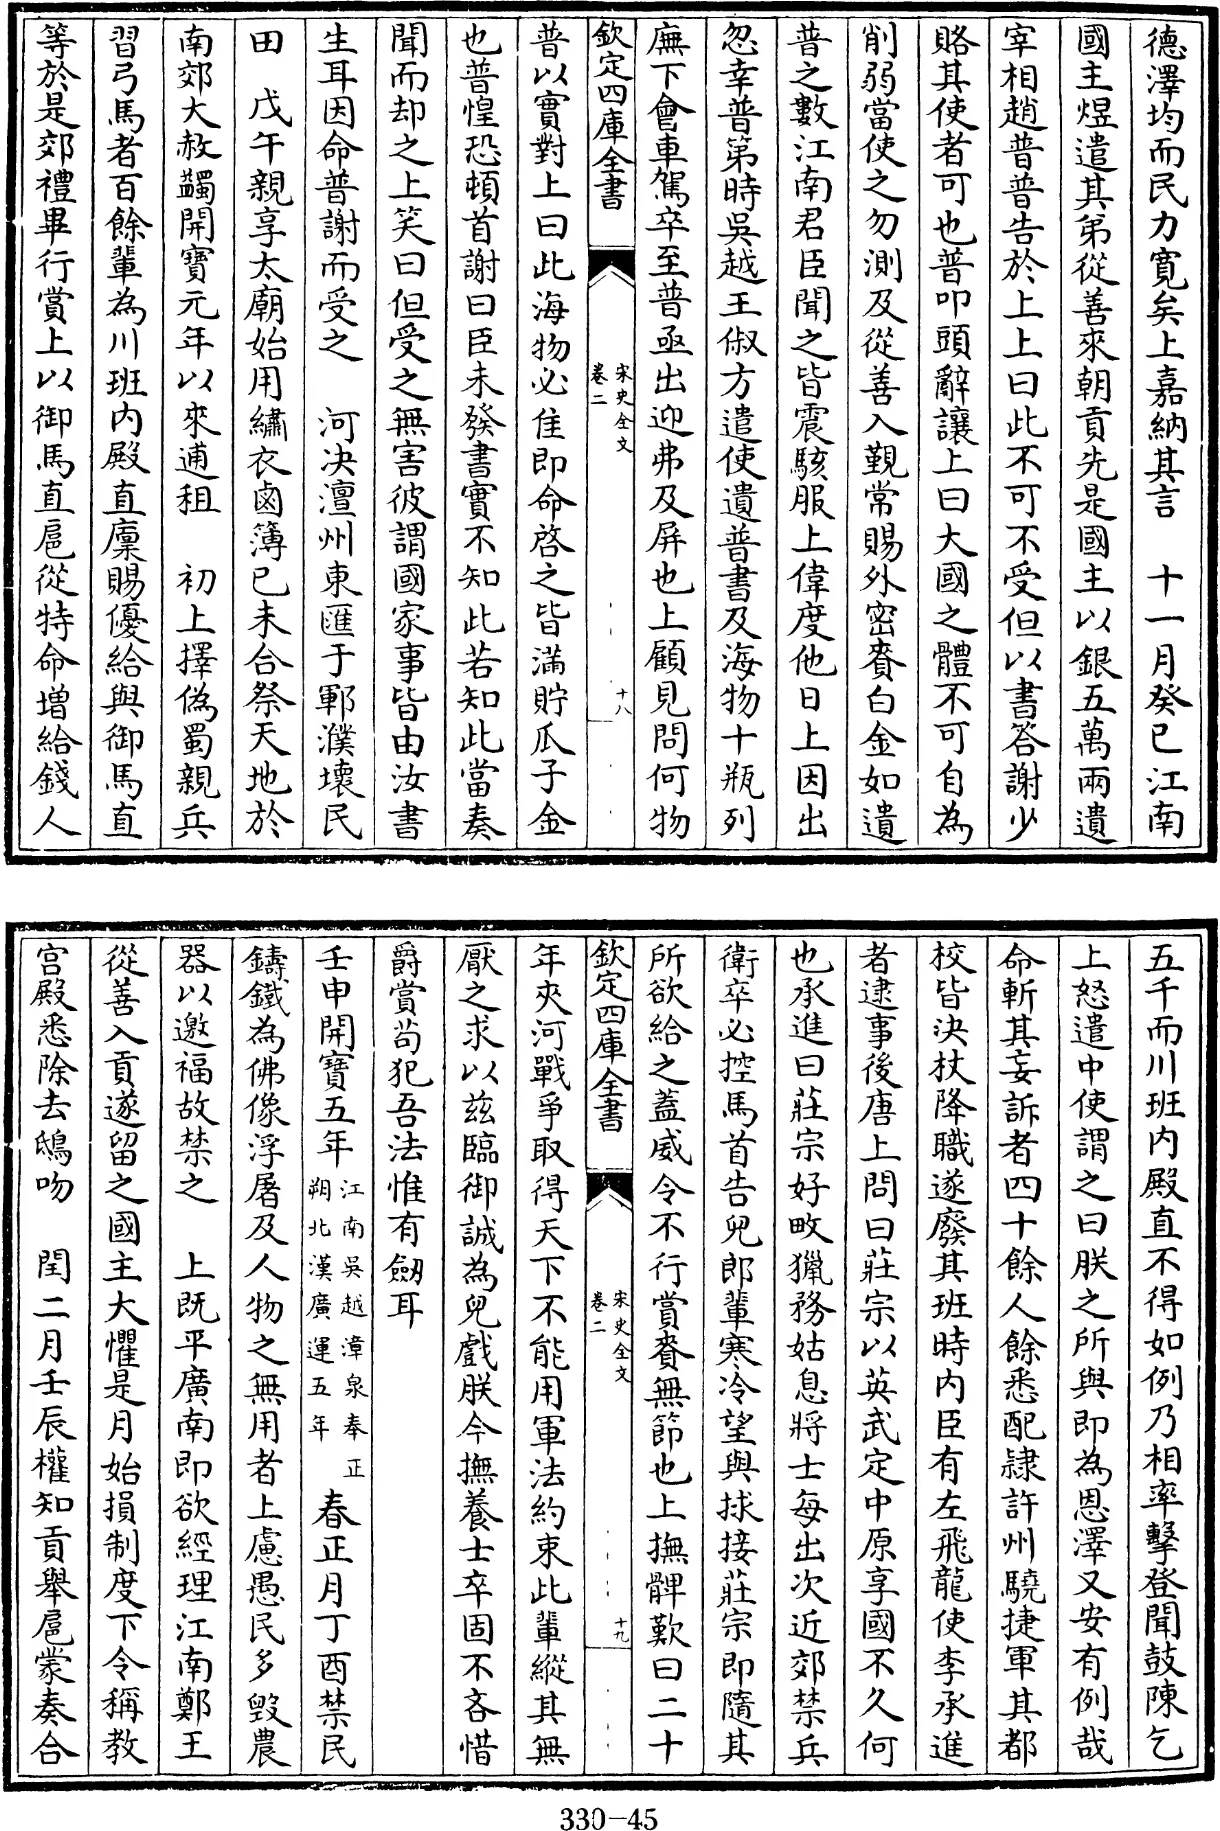 德澤均而民力寛矣上嘉納其言　十一月癸巳江南
國主煜遣其弟從善來朝貢先是國主以銀五萬兩遺
宰相趙普普告於上上曰此不可不受但以書答謝少
賂其使者可也普叩頭辭讓上曰大國之體不可自為
削弱當使之勿測及從善入覲常賜外密賚白金如遺
普之數江南君臣聞之皆震駭服上偉度他日上因出
忽幸普第時吳越王俶方遣使遺普書及海物十瓶列
廡下會車駕卒至普亟出迎弗及屏也上顧見問何物
欽定四庫全書
宋史全文
卷二
十八
普以實對上曰此海物必佳即命啓之皆滿貯瓜子金
也普惶恐頓首謝曰臣未發書實不知此若知此當奏
聞而却之上笑曰但受之無害彼謂國家事皆由汝書
生耳因命普謝而受之　河决澶州東匯于鄆濮壞民
田　戊午親享太廟始用繡衣鹵簿已未合祭天地於
南郊大赦蠲開寶元年以來逋租　初上擇偽蜀親兵
習弓馬者百餘輩為川班内殿直廩賜優給與御馬直
等於是郊禮畢行賞上以御馬直扈從特命增給錢人
五千而川班内殿直不得如例乃相率擊登聞鼓陳乞
上怒遣中使謂之曰朕之所與即為恩澤又安有例哉
命斬其妄訴者四十餘人餘悉配隷許州驍捷軍其都
校皆決杖降職遂廢其班時内臣有左飛龍使李承進
者逮事後唐上問曰莊宗以英武定中原享國不久何
也承進曰莊宗好畋獵務姑息將士每出次近郊禁兵
衛卒必控馬首告兒郎輩寒冷望與捄接莊宗即隨其
所欲給之蓋威令不行賞賚無節也上撫髀歎曰二十
欽定四庫全書
宋史全文
卷二
十九
年夾河戰爭取得天下不能用軍法約束此輩縱其無
厭之求以兹臨御誠為兒戲朕今撫養士卒固不吝惜
爵賞茍犯吾法惟有劒耳
壬申開寶五年江南吳越漳泉奉正朔北漢廣運五年春正月丁酉禁民
鑄鐵為佛像浮屠及人物之無用者上慮愚民多毁農
器以邀福故禁之　上既平廣南即欲經理江南鄭王
從善入貢遂留之國主大懼是月始損制度下令稱教
宫殿悉除去鴟吻　閏二月壬辰權知貢舉扈蒙奏合
330-45